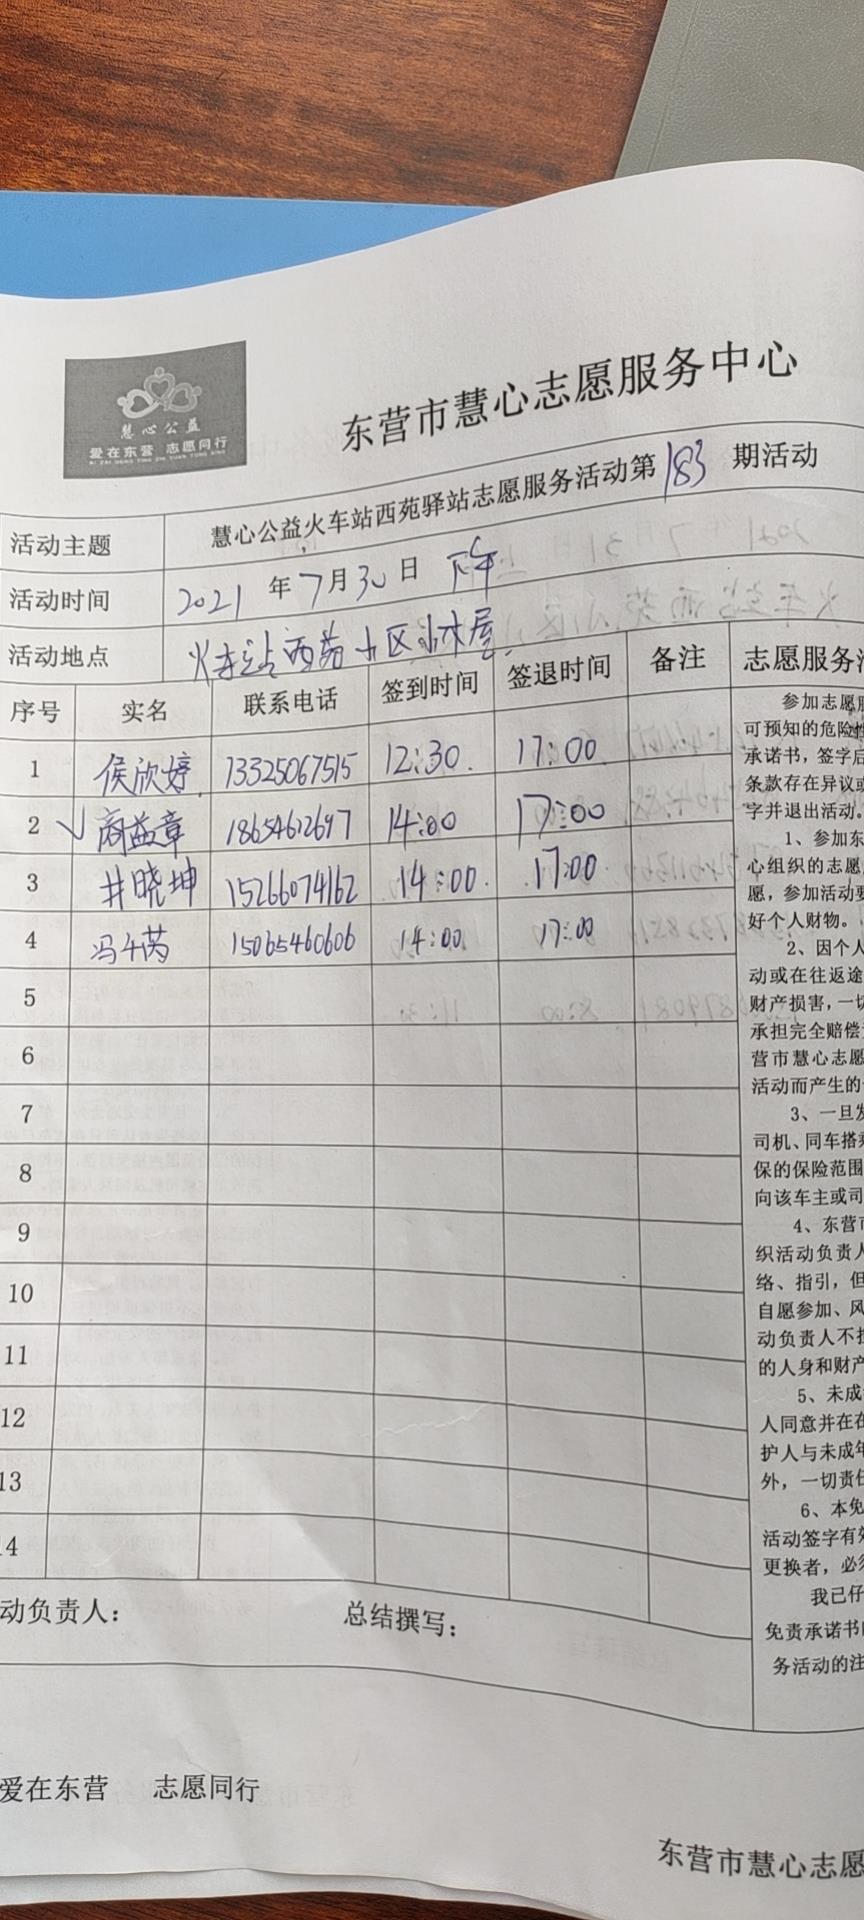 慧心公益
爱在东营 志愿同行
AI ZAI DONG YING ZHI YUAN TONG XING
东营市慧心志愿服务中心
活动主题 慧心公益火车站西苑驿站志愿服务活动第183期活动
活动时间 2021年7月30日 下午
活动地点 火车站西苑小区小木屋
序号 实名 联系电话 签到时间 签退时间 备注 志愿服务活
1 侯欣婷 13325067515 12:30 17:00
2 商益章 18654612697 14:00 17:00
3 井晓坤 15266074162 14:00 17:00
4 冯 15065460606 14:00 17:00
5
6
7
8
9
10
11
12
13
14
参加志愿服
可预知的危险性
承诺书,签字后
条款存在异议或
字并退出活动。
1、参加东
心组织的志愿
愿,参加活动要
好个人财物。
2、因个人
动或在往返途
财产损害,一切
承担完全赔偿
营市慧心志愿
活动而产生的
3、一旦发
司机、同车搭乘
保的保险范围
向该车主或司
4、东营市
织活动负责人
络、指引,但
自愿参加、风
动负责人不担
的人身和财产
5、未成年
人同意并在在
护人与未成年
外,一切责任
6、本免
活动签字有效
更换者,必须
我已仔
免责承诺书
务活动的注
动负责人: 总结撰写:
爱在东营 志愿同行
东营市慧心志愿